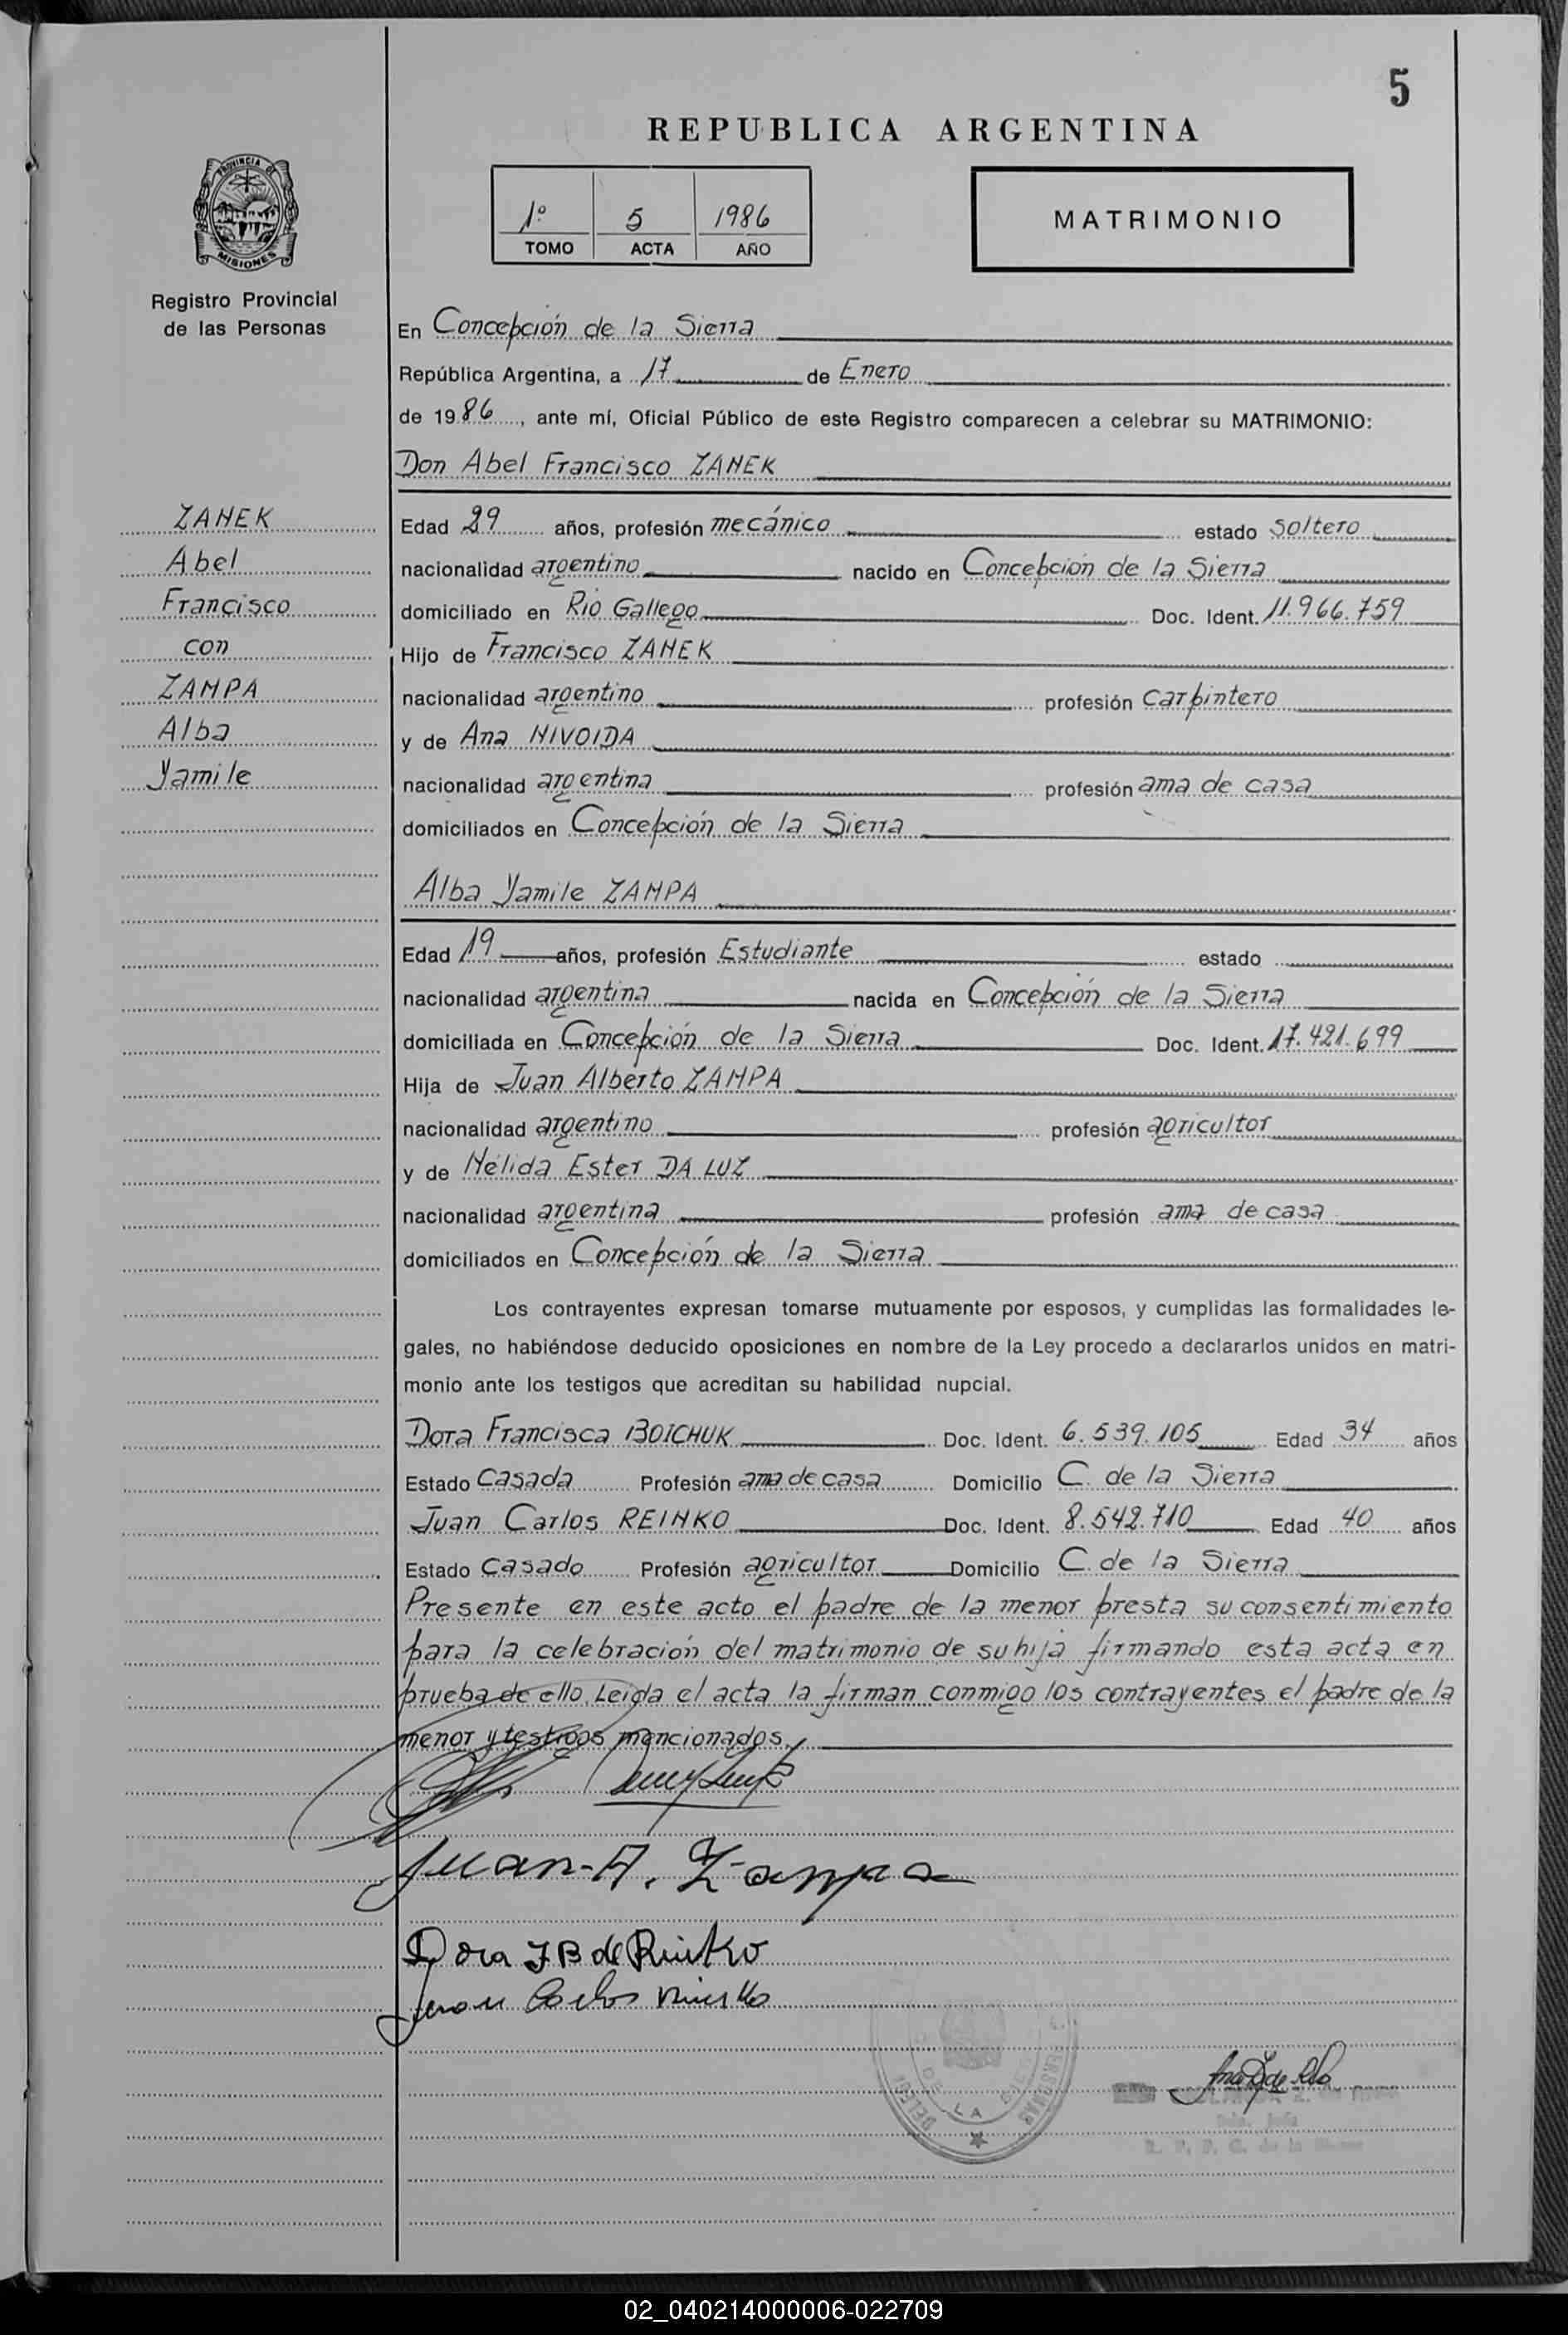 5
REPUBLICA ARGENTINA
PROVINCIA DE MISIONES
1º 5 1986
TOMO ACTA AÑO
MATRIMONIO
Registro Provincial
de las Personas
En Concepción de la Sierra
República Argentina, a 17 de Enero
de 1986, ante mí, Oficial Público de este Registro comparecen a celebrar su MATRIMONIO:
Don Abel Francisco ZANEK
ZANEK
Abel
Francisco
con
ZAMPA
Alba
Yamile
Edad 29 años, profesión mecánico estado soltero
nacionalidad argentino nacido en Concepción de la Sierra
domiciliado en Rio Gallego Doc. Ident. 11.966.759
Hijo de Francisco ZANEK
nacionalidad argentino profesión carpintero
y de Ana NIVOIDA
nacionalidad argentina profesión ama de casa
domiciliados en Concepción de la Sierra
Alba Yamile ZAMPA
Edad 19 años, profesión Estudiante estado
nacionalidad argentina nacida en Concepción de la Sierra
domiciliada en Concepción de la Sierra Doc. Ident. 17.421.699
Hija de Juan Alberto ZAMPA
nacionalidad argentino profesión agricultor
y de Nélida Ester DA LUZ
nacionalidad argentina profesión ama de casa
domiciliados en Concepción de la Sierra
Los contrayentes expresan tomarse mutuamente por esposos, y cumplidas las formalidades le-
gales, no habiéndose deducido oposiciones en nombre de la Ley procedo a declararlos unidos en matri-
monio ante los testigos que acreditan su habilidad nupcial.
Dora Francisca BOICHUK Doc. Ident. 6.539.105 Edad 34 años
Estado Casada Profesión ama de casa Domicilio C. de la Sierra
Juan Carlos REINKO Doc. Ident. 8.542.710 Edad 40 años
Estado Casado Profesión agricultor Domicilio C. de la Sierra
Presente en este acto el padre de la menor presta su consentimiento
para la celebración del matrimonio de su hija firmando esta acta en
prueba de ello. Leída el acta la firman conmigo los contrayentes el padre de la
menor y testigos mencionados.
Juan A. Zampa
Dora F B de Reinko
Juan Carlos Reinko
02_040214000006-022709